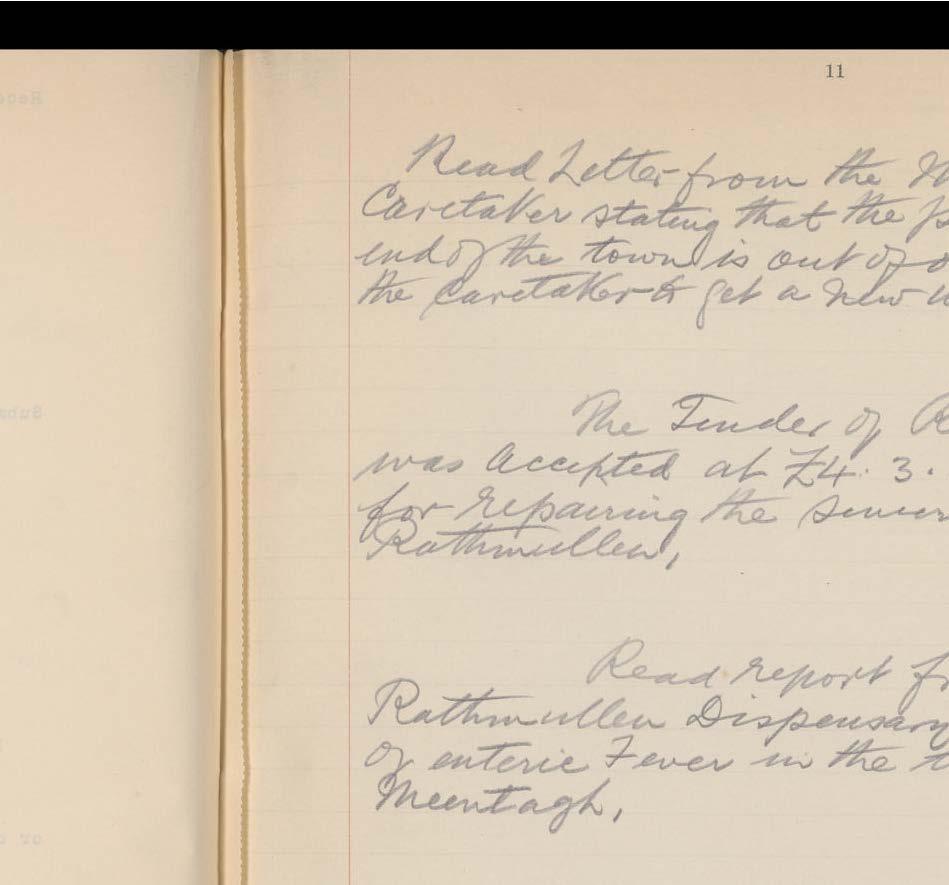 11
Read Letter from the
Caretaker stating that the
end of the town is out of
the Caretaker to get a new
The Tender of
was Accepted at £4. 3.
for repairing the sewer
Rathmullen,
Read report
Rathmullen Dispensary
of enteric Fever in the
Meentagh,